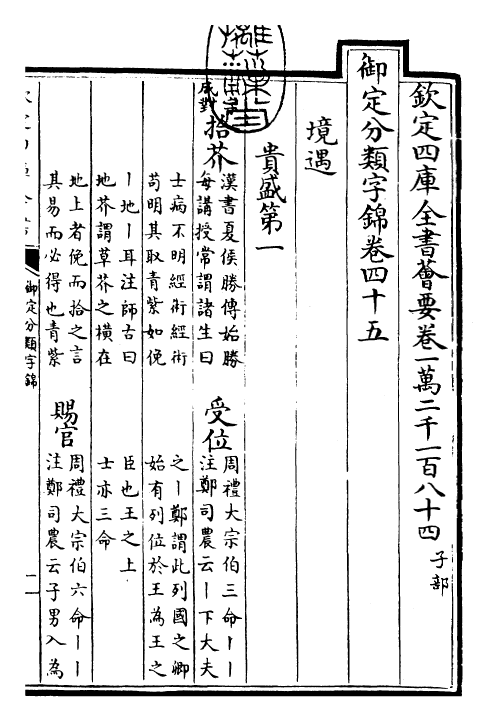 欽定四庫全書薈要卷一萬二千一百八十四 子部
御定分類字錦卷四十五
境遇
貴盛第一
成對
拾芥 漢書夏侯勝傳始勝
每講授常謂諸生曰
士病不明經術經術
苟明其取青紫如俛
丨地丨耳注師古曰
地芥謂草芥之橫在
地上者俛而拾之言
其易而必得也青紫
受位 周禮大宗伯三命丨丨
注鄭司農云丨下大夫
之丨鄭謂此列國之卿
始有列位於王為王之
臣也王之上
士亦三命
賜官 周禮大宗伯六命丨丨
注鄭司農云子男入為
御定分類字錦
一